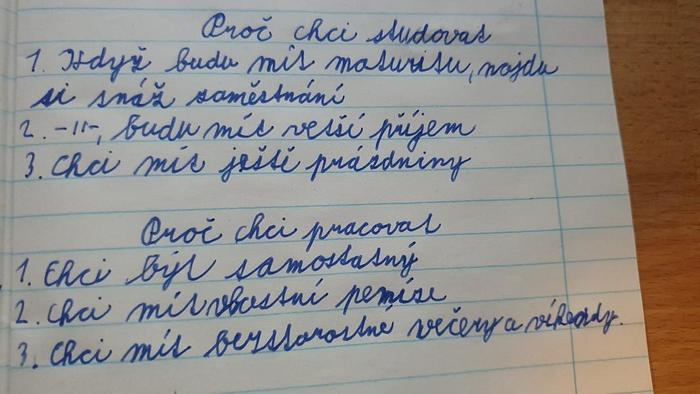 Proč chci studovat
1. Když budu mít maturitu, najdu
si snáž zaměstnání
2. -11-, budu mít vetší příjem
3. Chci mít ještě prázdniny
Proč chci pracovat
1. Chci být samostatný
2. Chci mít vlastní peníze
3. Chci mít bezstarostné večery a víkendy.